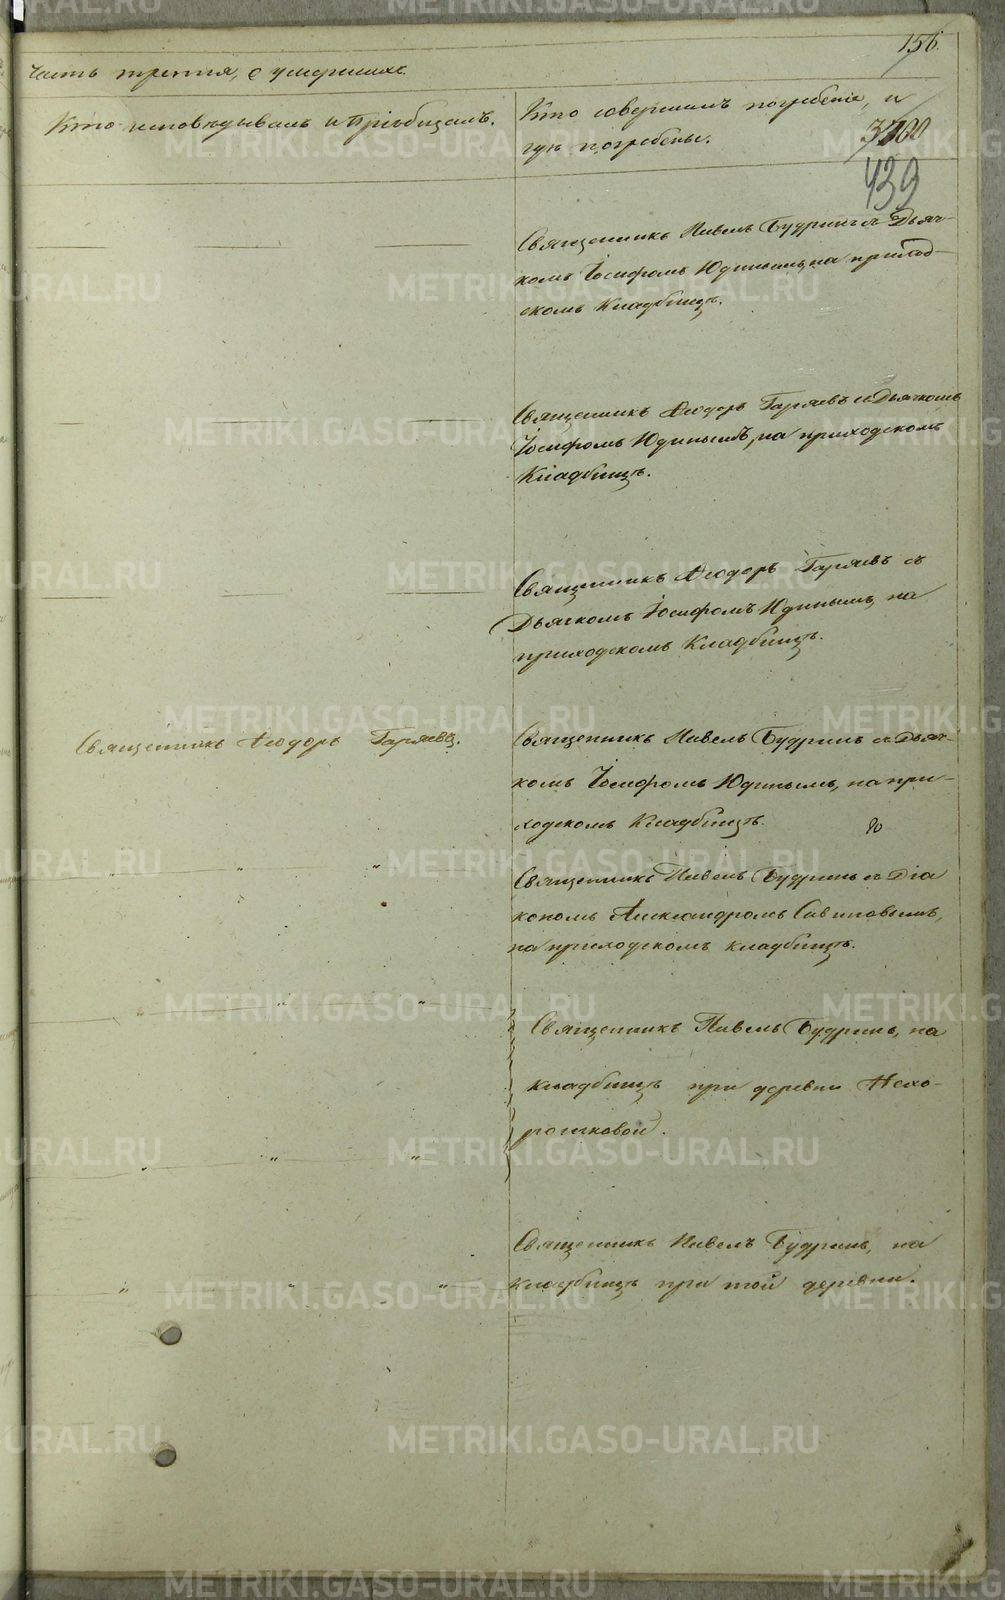 156
Часть третія, о умершихъ.
Кто исповѣдывалъ и пріобщалъ.
Кто совершалъ погребеніе, и
гдѣ погребены.
439
Священникъ Павелъ Будринъ съ Дьяч-
комъ Іосифомъ Юдинымъ, на приход-
скомъ Кладбищѣ.
Священникъ Ѳеодоръ Гаряевъ съ Дьячкомъ
Іосифомъ Юдинымъ, на приходскомъ
Кладбищѣ.
Священникъ Ѳеодоръ Гаряевъ съ
Дьячкомъ Іосифомъ Юдинымъ, на
приходскомъ Кладбищѣ.
Священникъ Ѳеодоръ Гаряевъ.
Священникъ Павелъ Будринъ съ Дьяч-
комъ Іосифомъ Юдинымъ, на при-
ходскомъ Кладбищѣ.
Священникъ Павелъ Будринъ съ Діа
кономъ Александромъ Савиновымъ,
на приходскомъ кладбищѣ.
Священникъ Павелъ Будринъ, на
кладбищѣ при деревни Нехо-
рошковой.
Священникъ Павелъ Будринъ, на
кладбищѣ при той деревни.
METRIKI.GASO-URAL.RU